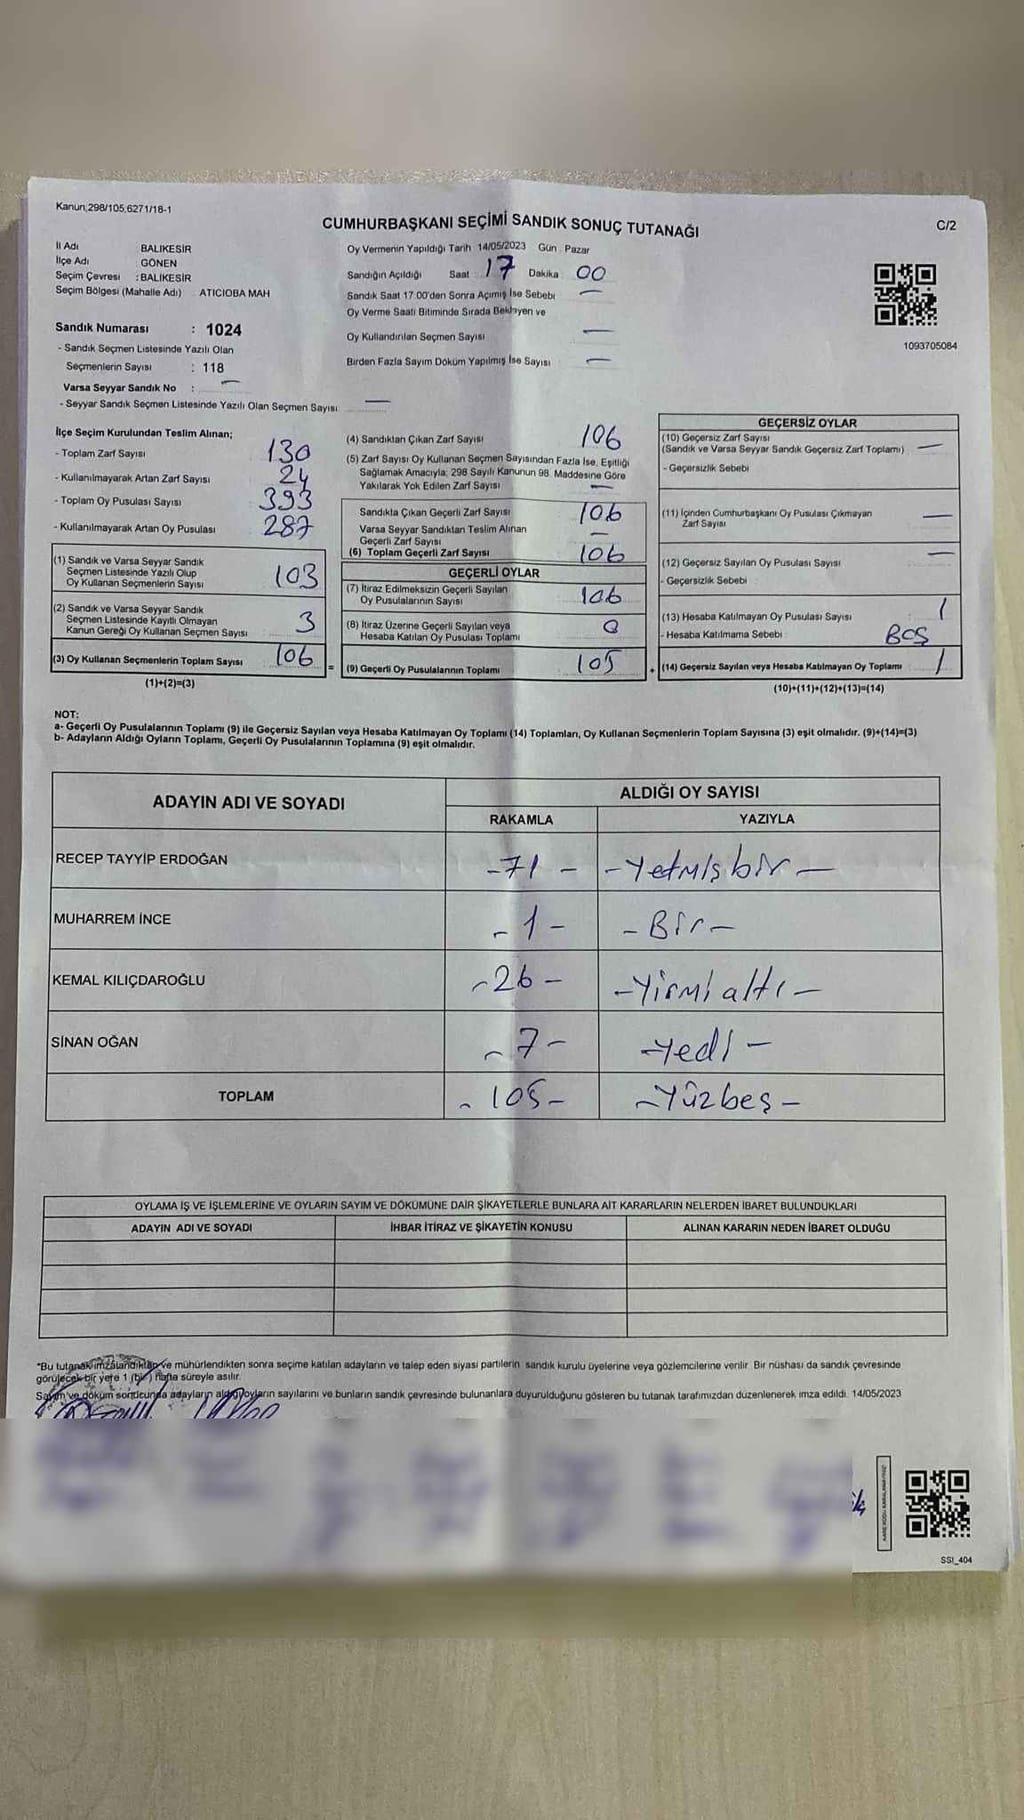 Kanun;298/105,6271/18-1
CUMHURBAŞKANI SEÇİMİ SANDIK SONUÇ TUTANAĞI
C/2
İl Adı BALIKESİR
İlçe Adı GÖNEN
Seçim Çevresi : BALIKESİR
Seçim Bölgesi (Mahalle Adı) ATICIOBA MAH
Sandık Numarası : 1024
- Sandık Seçmen Listesinde Yazılı Olan
Seçmenlerin Sayısı : 118
Varsa Seyyar Sandık No : —
- Seyyar Sandık Seçmen Listesinde Yazılı Olan Seçmen Sayısı —
Oy Vermenin Yapıldığı Tarih 14/05/2023 Gün Pazar
Sandığın Açıldığı Saat 17 Dakika 00
Sandık Saat 17:00'den Sonra Açımış İse Sebebi —
Oy Verme Saati Bitiminde Sırada Bekleyen ve
Oy Kullandırılan Seçmen Sayısı —
Birden Fazla Sayım Döküm Yapılmış İse Sayısı —
1093705084
İlçe Seçim Kurulundan Teslim Alınan;
- Toplam Zarf Sayısı 130
- Kullanılmayarak Artan Zarf Sayısı 24
- Toplam Oy Pusulası Sayısı 393
- Kullanılmayarak Artan Oy Pusulası 287
(1) Sandık ve Varsa Seyyar Sandık
Seçmen Listesinde Yazılı Olup
Oy Kullanan Seçmenlerin Sayısı 103
(2) Sandık ve Varsa Seyyar Sandık
Seçmen Listesinde Kayıtlı Olmayan
Kanun Gereği Oy Kullanan Seçmen Sayısı 3
(3) Oy Kullanan Seçmenlerin Toplam Sayısı 106
(1)+(2)=(3)
=
(4) Sandıktan Çıkan Zarf Sayısı 106
(5) Zarf Sayısı Oy Kullanan Seçmen Sayısından Fazla İse, Eşitliği
Sağlamak Amacıyla; 298 Sayılı Kanunun 98. Maddesine Göre
Yakılarak Yok Edilen Zarf Sayısı —
Sandıkta Çıkan Geçerli Zarf Sayısı 106
Varsa Seyyar Sandıktan Teslim Alınan
Geçerli Zarf Sayısı —
(6) Toplam Geçerli Zarf Sayısı 106
GEÇERLİ OYLAR
(7) İtiraz Edilmeksizin Geçerli Sayılan
Oy Pusulalarının Sayısı 106
(8) İtiraz Üzerine Geçerli Sayılan veya
Hesaba Katılan Oy Pusulası Toplamı 0
(9) Geçerli Oy Pusulalarının Toplamı 105
+
GEÇERSİZ OYLAR
(10) Geçersiz Zarf Sayısı
(Sandık ve Varsa Seyyar Sandık Geçersiz Zarf Toplamı) —
- Geçersizlik Sebebi
(11) İçinden Cumhurbaşkanı Oy Pusulası Çıkmayan
Zarf Sayısı —
(12) Geçersiz Sayılan Oy Pusulası Sayısı —
- Geçersizlik Sebebi
(13) Hesaba Katılmayan Oy Pusulası Sayısı 1
- Hesaba Katılmama Sebebi BOŞ
(14) Geçersiz Sayılan veya Hesaba Katılmayan Oy Toplamı 1
(10)+(11)+(12)+(13)=(14)
NOT:
a- Geçerli Oy Pusulalarının Toplamı (9) ile Geçersiz Sayılan veya Hesaba Katılmayan Oy Toplamı (14) Toplamları, Oy Kullanan Seçmenlerin Toplam Sayısına (3) eşit olmalıdır. (9)+(14)=(3)
b- Adayların Aldığı Oyların Toplamı, Geçerli Oy Pusulalarının Toplamına (9) eşit olmalıdır.
ADAYIN ADI VE SOYADI
ALDIĞI OY SAYISI
RAKAMLA YAZIYLA
RECEP TAYYİP ERDOĞAN -71- -Yetmiş bir-
MUHARREM İNCE -1- -Bir-
KEMAL KILIÇDAROĞLU -26- -Yirmi altı-
SİNAN OĞAN -7- -Yedi-
TOPLAM -105- -Yüzbeş-
OYLAMA İŞ VE İŞLEMLERİNE VE OYLARIN SAYIM VE DÖKÜMÜNE DAİR ŞİKAYETLERLE BUNLARA AİT KARARLARIN NELERDEN İBARET BULUNDUKLARI
ADAYIN ADI VE SOYADI İHBAR İTİRAZ VE ŞİKAYETİN KONUSU ALINAN KARARIN NEDEN İBARET OLDUĞU
*Bu tutanak imzalandıktan ve mühürlendikten sonra seçime katılan adayların ve talep eden siyasi partilerin sandık kurulu üyelerine veya gözlemcilerine verilir. Bir nüshası da sandık çevresinde
görülecek bir yere 1 (bir) hafta süreyle asılır.
Sayım ve döküm sonucunda adayların aldığı oyların sayılarını ve bunların sandık çevresinde bulunanlara duyurulduğunu gösteren bu tutanak tarafımızdan düzenlenerek imza edildi. 14/05/2023
SSI_404